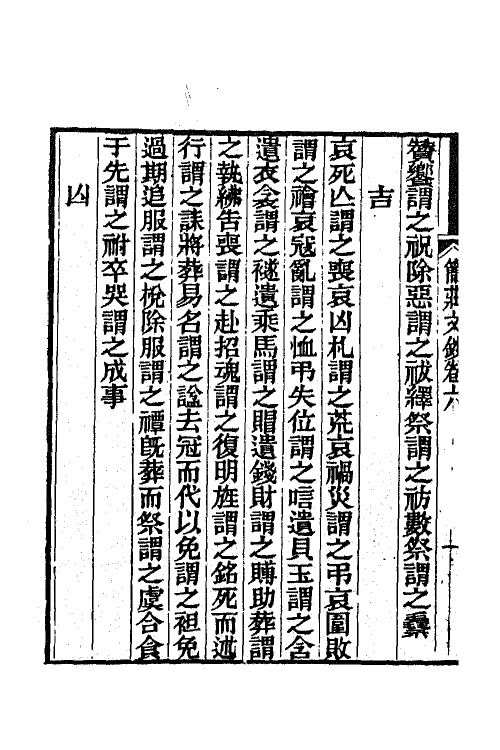 簡莊文鈔卷六
十
贊饗謂之祝除惡謂之祓繹祭謂之祊數祭謂之
吉
哀死亾謂之喪哀凶札謂之荒哀禍災謂之弔哀圍敗
謂之禬哀寇亂謂之恤弔失位謂之唁遺貝玉謂之含
遺衣衾謂之襚遺乘馬謂之賵遺錢財謂之賻助葬謂
之執紼告喪謂之赴招魂謂之復明旌謂之銘死而述
行謂之誄將葬易名謂之諡去冠而代以免謂之袒免
過期追服謂之梲除服謂之禫旣葬而祭謂之虞合食
于先謂之祔卒哭謂之成事
凶